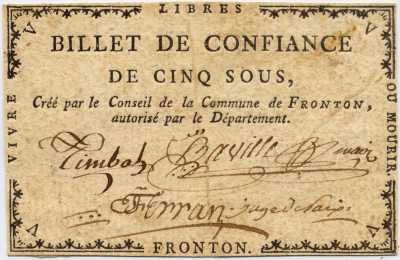 LIBRES
VIVRE
OU MOURIR.
BILLET DE CONFIANCE
DE CINQ SOUS,
Créé par le Conseil de la Commune de FRONTON,
autorisé par le Département.
Timbal Baville
Ferran juge de paix
FRONTON.